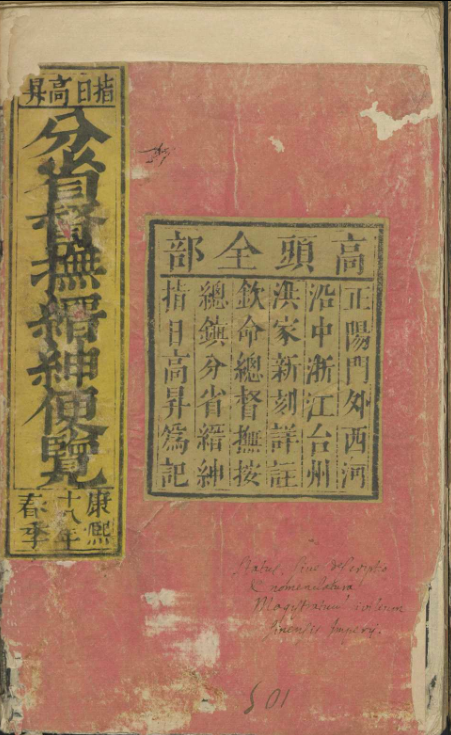 高頭全部
正陽門外西河
沿中浙江台州
洪家新刻詳註
欽命總督撫按
總鎮分省縉紳
指日高昇爲記
指日高昇
分省督撫縉紳便覽
康熙
十八年
春季
nomenclatura
Magistratuum
Sinensis Imperij.